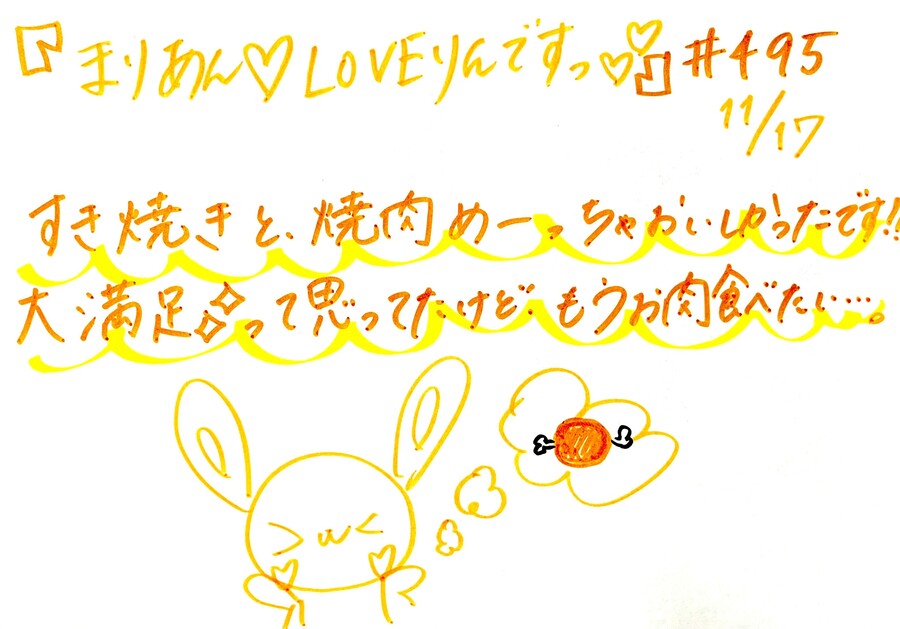 『まりあん♡LOVEりんですっ♡♡』#495
11/17
すき焼きと、焼肉めーっちゃおいしかったです!!
大満足✧✧って思ってたけど、もうお肉食べたい…。